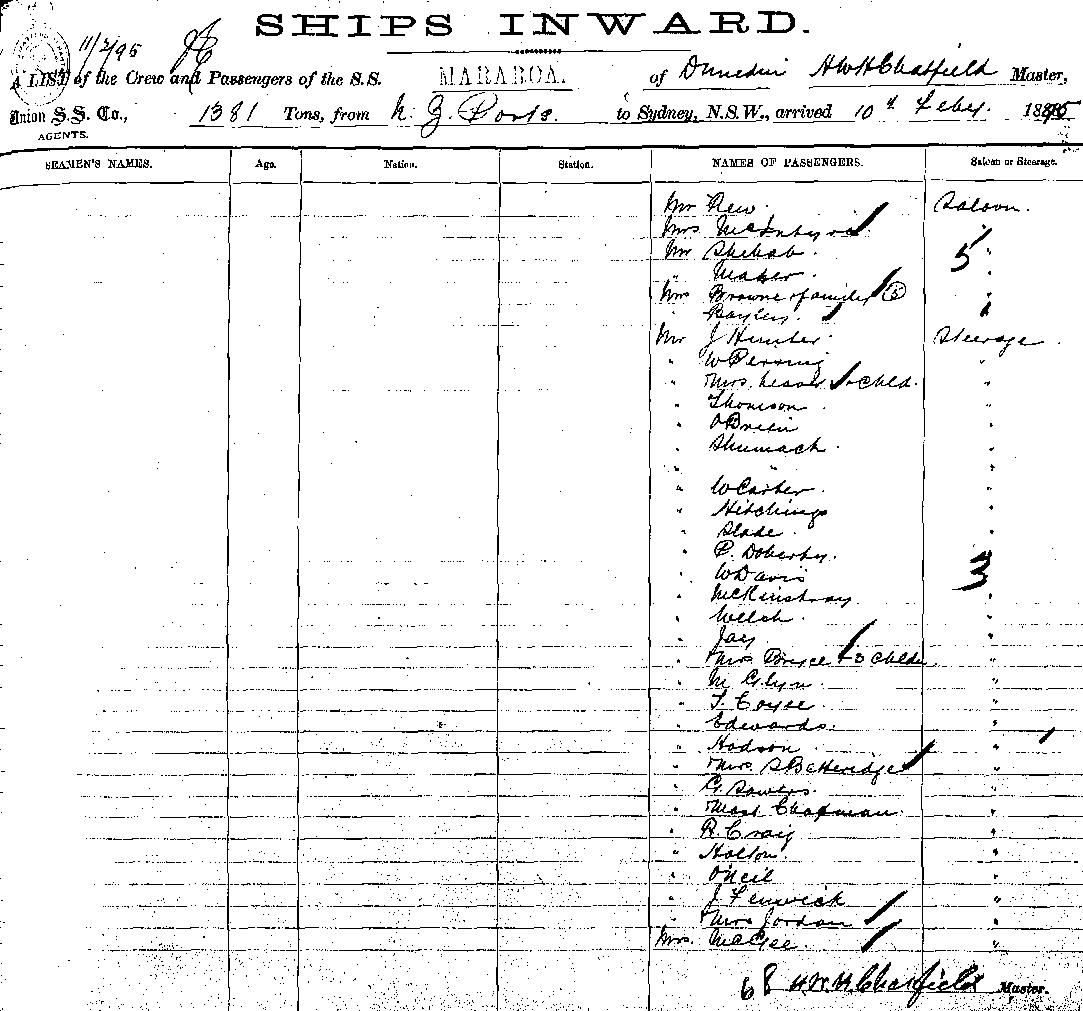 SHIPS INWARD.
11/2/95
A LIST of the Crew and Passengers of the S.S. MARAROA. of Dunedin H W H Chatfield Master,
Union S.S. Co., 1381 Tons, from N. Z. Ports. to Sydney, N.S.W., arrived 10th Feby. 1895
AGENTS.
SEAMEN'S NAMES. Age. Nation. Station. NAMES OF PASSENGERS. Saloon or Steerage.
Mr New. Saloon.
Mrs McIntyre "
Mr Shehab. 5 "
" Maher. "
Mrs Browne & family (5) "
" "
Mr J Hunter. Steerage.
" W "
" Mrs & Child. "
" Thomson "
" O'Brien "
" Shumack "
" " "
" W Carter. "
" Hitchings "
" Slade. "
" P. Doherty. "
" W Davis 3
" McKinstray "
" Welch. "
" Jay "
" Mrs Bryce & 3 Childn "
" M Glyn. "
" T. Coyle "
" Edwards. "
" Hodson "
" Mrs S Betteridge "
" G. Sowers. "
" Mast Chapman "
" R. Craig "
" Holton. "
" O'Neil "
" J Fenwick "
" Mrs Jordan "
Mrs McGee. "
68 H.W.H. Chatfield Master.